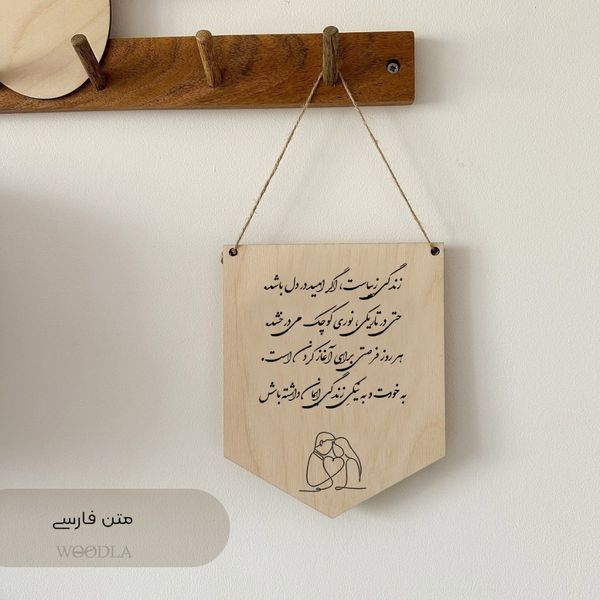 زندگی زیباست، اگر امید در دل باشد.
حتی در تاریکی، نوری کوچک می درخشد.
هر روز فرصتی برای آغاز کردن است.
به خودت و به نیکی زندگی ایمان داشته باش
متن فارسی
WOODLA